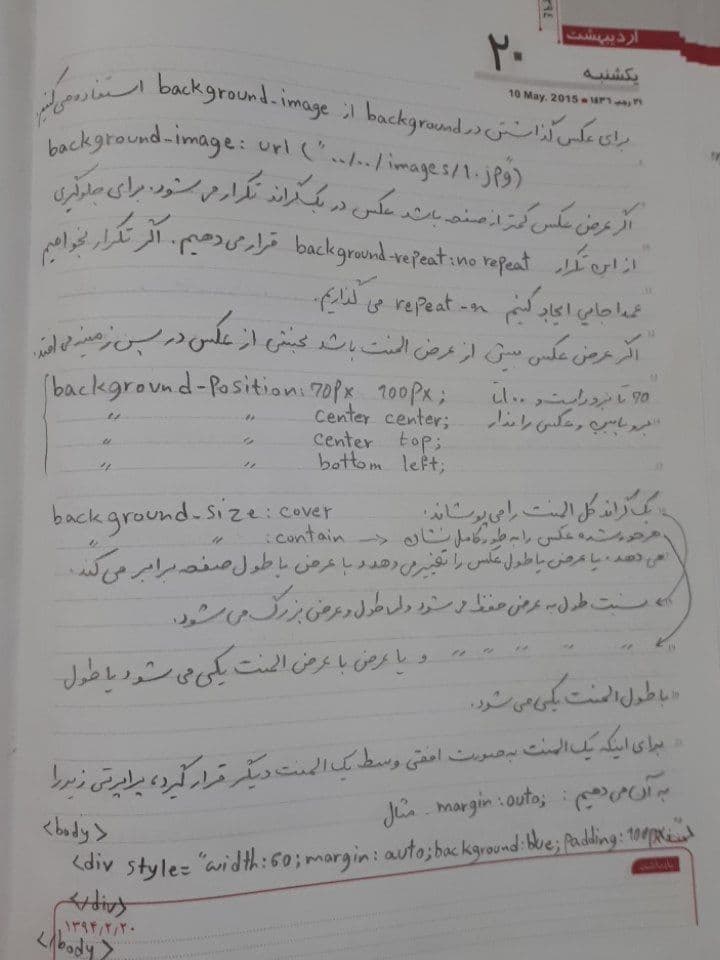 اردیبهشت
۲۰
یکشنبه
10 May. 2015 ■ ۱۴۳۶ رجب ۲۱
برای عکس گذاشتن در background از background-image استفاده می‌کنیم.
background-image: url ("../../images/1.jpg")
اگر عرض عکس کمتر از صفحه باشد عکس در بک‌گراند تکرار می‌شود. برای جلوگیری
از این تکرار background-repeat: no repeat قرار می‌دهیم. اگر تکرار بخواهیم
عمدا جایی ایجاد کنیم repeat-x می‌گذاریم.
اگر عرض عکس بیش از عرض المنت باشد بخشی از عکس در پس زمینه می‌افتد.
background-Position: 70px 100px; 70 تا برو راست و 100 تا
" " Center center; برو پایین و عکس را بنداز
" " Center top;
" " bottom left;
background-size: cover بک‌گراند کل المنت را می‌پوشاند.
" " : contain → هر جور شده عکس را به طور کامل نشان
می‌دهد. یا عرض یا طول عکس را تغییر می‌دهد و با عرض یا طول صفحه برابر می‌کند.
نسبت طول به عرض حفظ می‌شود ولی طول و عرض بزرگ می‌شود.
" " " " " و یا عرض با عرض المنت یکی می‌شود یا طول
با طول المنت یکی می‌شود.
برای اینکه یک المنت به صورت افقی وسط یک المنت دیگر قرار گیرد، پراپرتی زیر را
به آن می‌دهیم: margin: auto; مثال
<body>
<div style="width: 60; margin: auto; background: blue; Padding: 100px
</div>
یادداشت
۱۳۹۴/۲/۲۰
</body>